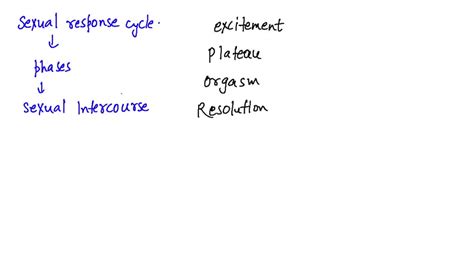 Sexual response cycle.
↓
phases
↓
Sexual Intercourse
excitement
Plateau
orgasm
Resolution